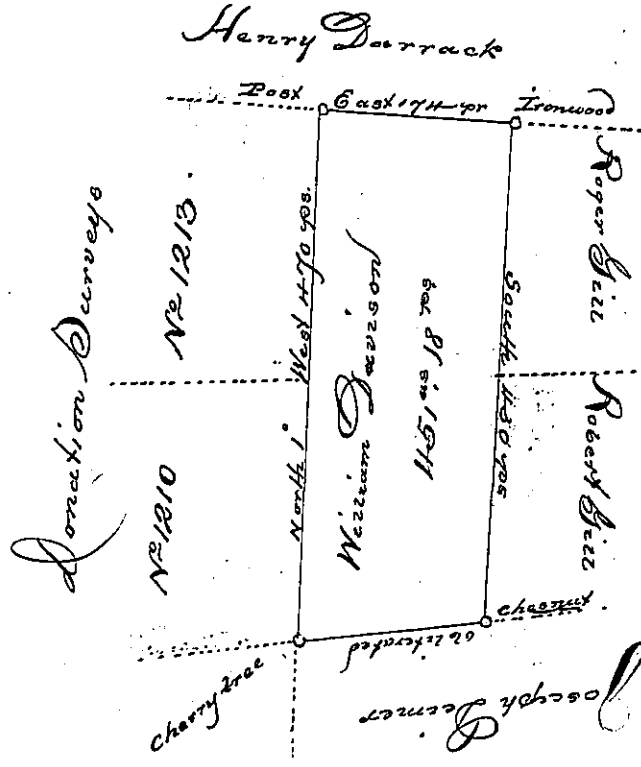 Henry Darrack
Post East 174 pr Ironwood
Donation Surveys
No 1213.
No 1210
North 1° West 470 ps.
William Davison
451 as 18 ps
South 430 ps
Roger Gill
Robert Gill
Chesnut
obliterated
Cherry tree
Joseph Deemer